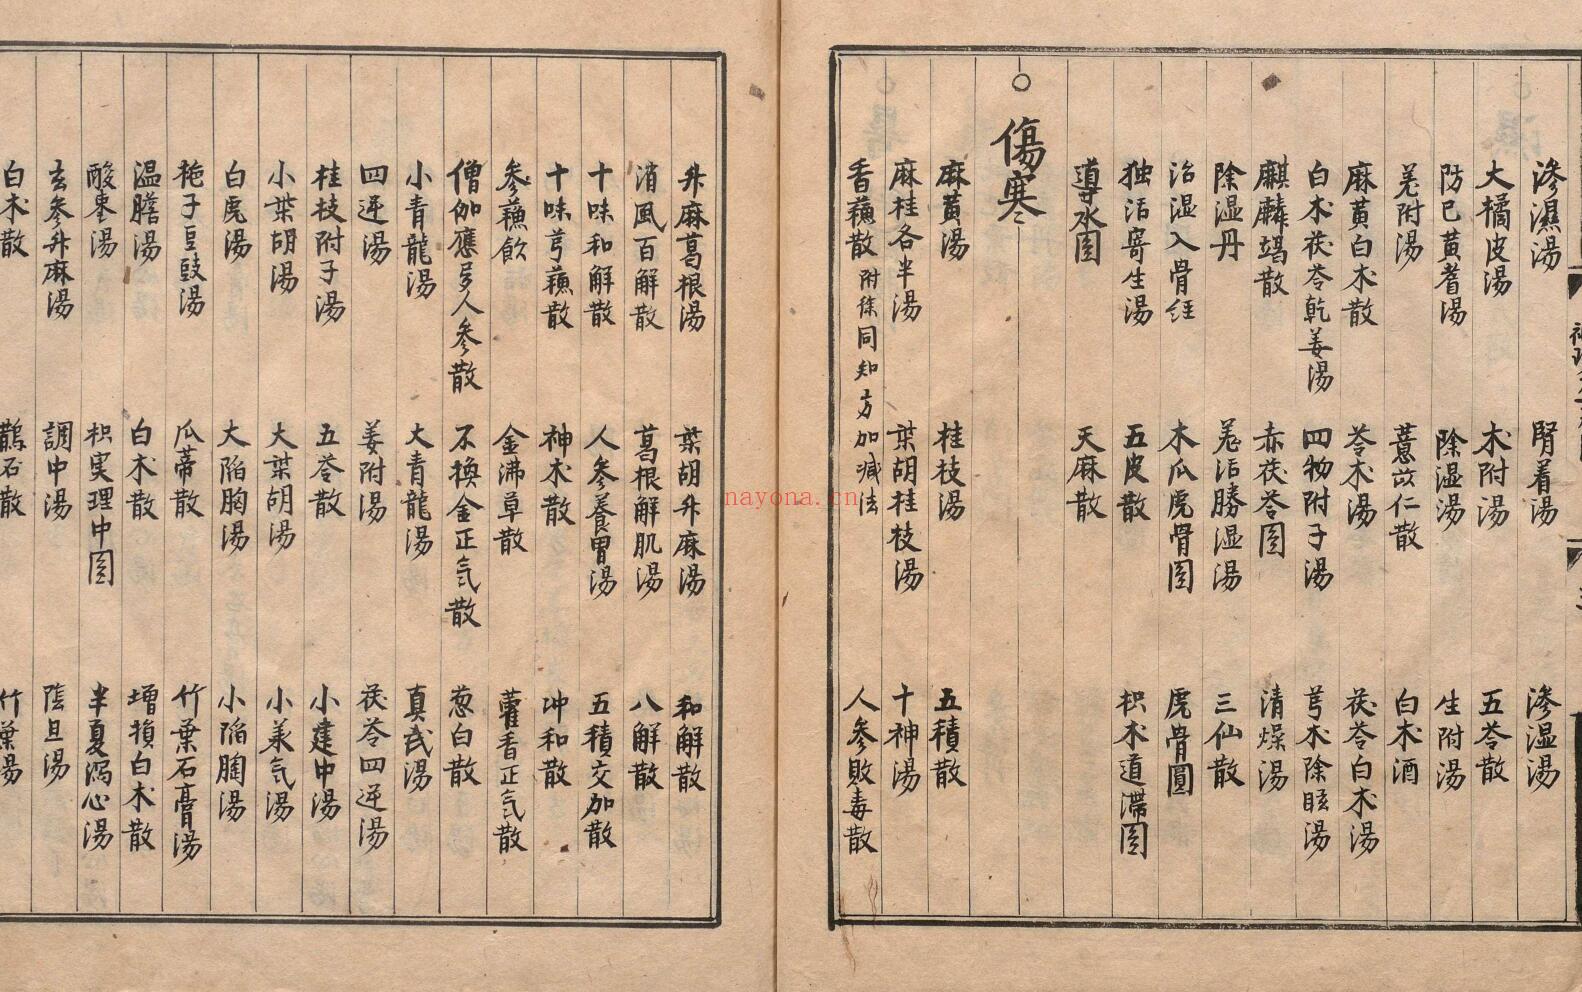 滲濕湯 腎着湯 滲湿湯
大橘皮湯 朮附湯 五苓散
防己黃耆湯 除湿湯 生附湯
羌附湯 薏苡仁散 白朮酒
麻黃白朮散 苓朮湯 茯苓白朮湯
白朮茯苓乾姜湯 四物附子湯 芎朮除眩湯
麒麟竭散 赤茯苓圓 清燥湯
除湿丹 羌活勝湿湯 三仙散
治湿入骨經 木瓜虎骨圓 虎骨圓
独活寄生湯 五皮散 枳朮道滞圓
導水圓 天麻散
○傷寒
麻黃湯 桂枝湯 五積散
麻桂各半湯 柴胡桂枝湯 十神湯
香蘓散 附徐同知方加減法 人參敗毒散
升麻葛根湯 柴胡升麻湯 和解散
消風百解散 葛根解肌湯 八解散
十味和解散 人參養胃湯 五積交加散
十味芎蘓散 神朮散 冲和散
參蘓飲 金沸草散 藿香正氣散
僧伽應夛人參散 不換金正氣散 葱白散
小青龍湯 大青龍湯 真武湯
四逆湯 姜附湯 茯苓四逆湯
桂枝附子湯 五苓散 小建中湯
小柴胡湯 大柴胡湯 小承气湯
白虎湯 大陷胸湯 小陷胸湯
梔子豆豉湯 瓜蒂散 竹葉石膏湯
温膽湯 白朮散 增損白朮散
酸棗湯 枳实理中圓 半夏瀉心湯
玄參升麻湯 調中湯 陰旦湯
白朮散 鵲石散 竹葉湯
nayona.cn